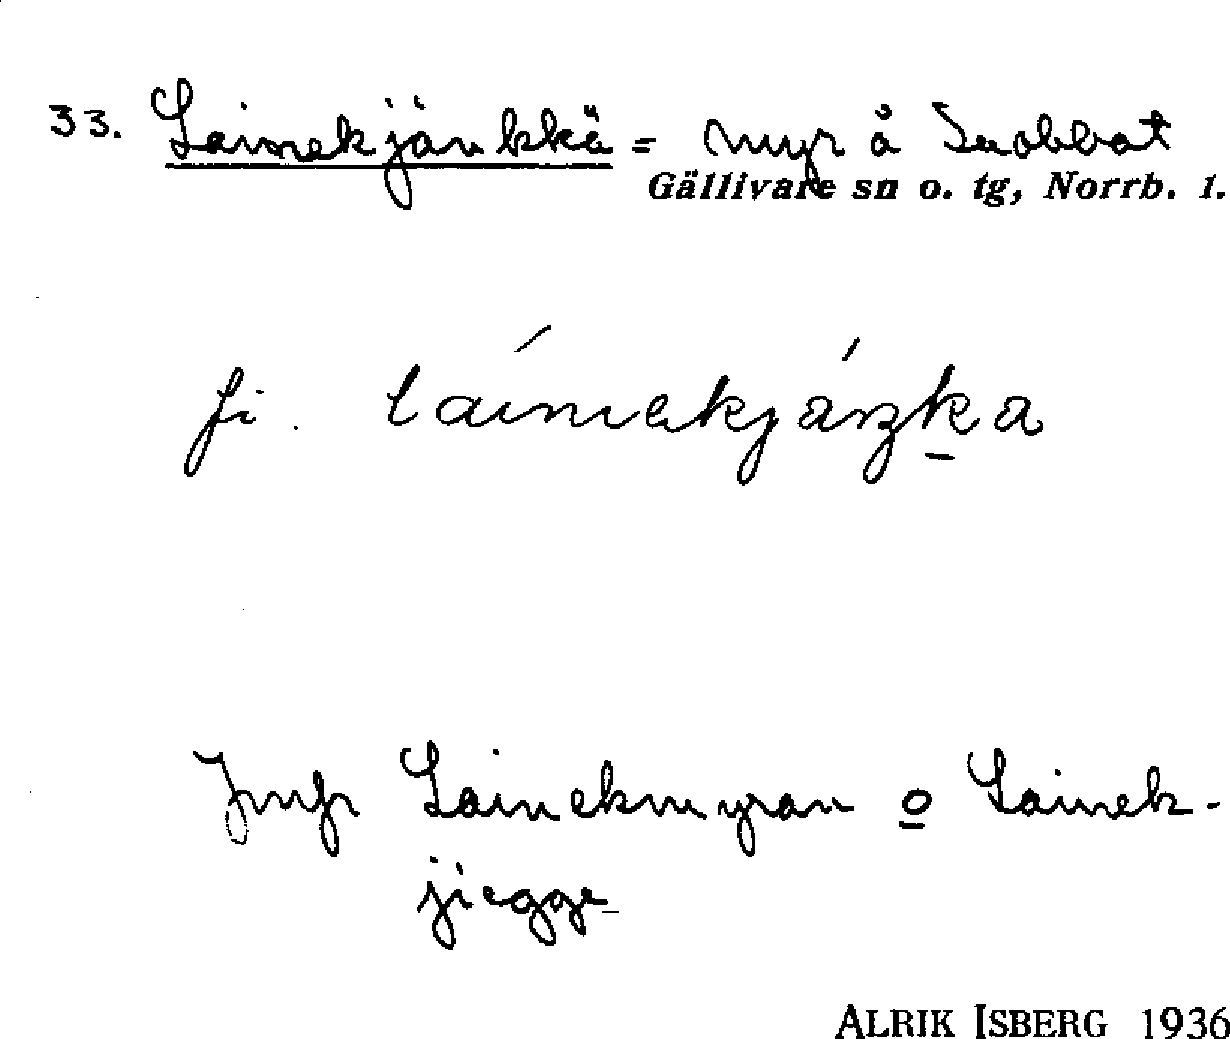 33. Lainekjänkkä = myr å Suobbat
Gällivare sn o. tg, Norrb. l.
fi. lainiekjaŋka
Jmfr Lainekmyran o Lainek-
jiegge
ALRIK ISBERG 1936